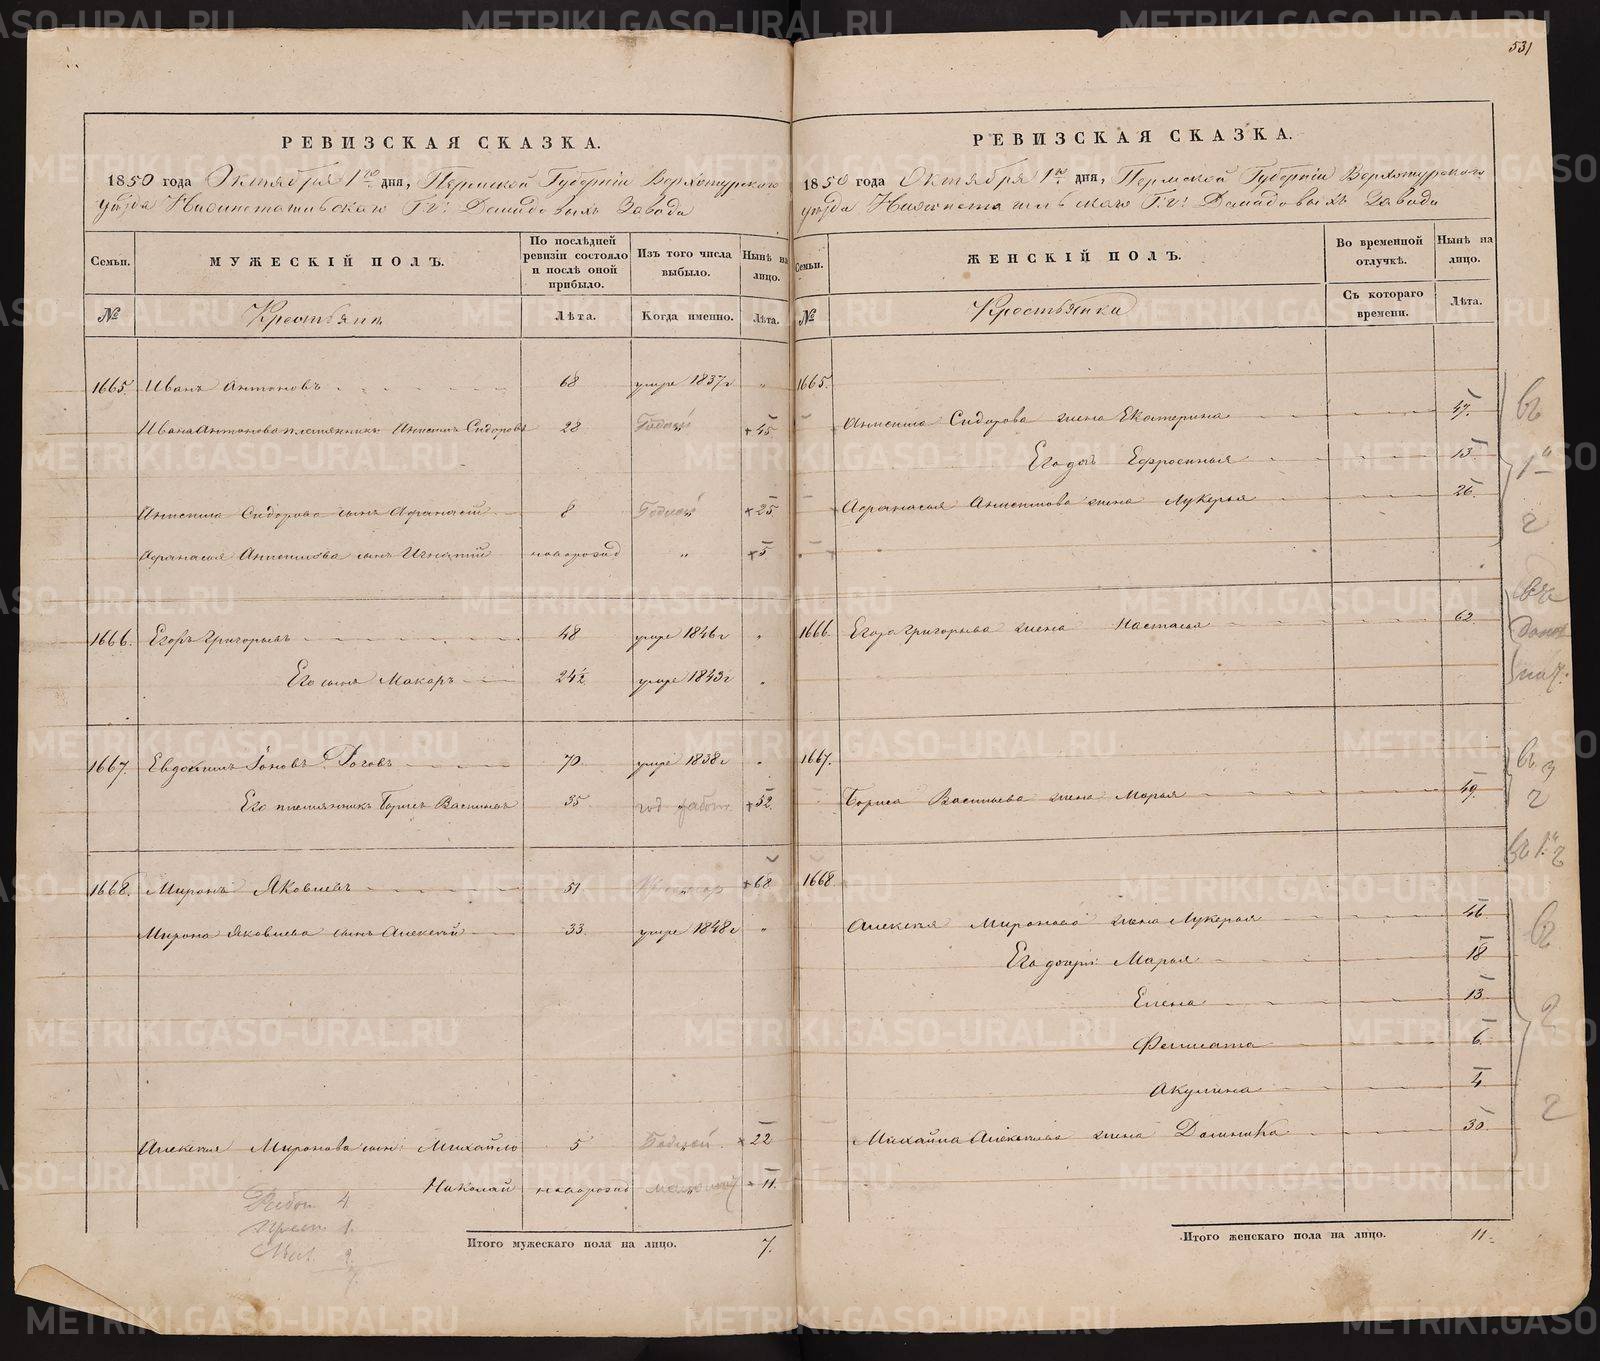 531
РЕВИЗСКАЯ СКАЗКА.
1850 года Октября 1го дня, Пермской Губерніи Верхотурскаго
уѣзда Нижнетагильскаго Г.г. Демидовыхъ Завода
Семьи.
МУЖЕСКІЙ ПОЛЪ.
По послѣдней ревизіи состояло и послѣ оной прибыло.
Изъ того числа выбыло.
Нынѣ на лицо.
№
Крестьяне
Лѣта.
Когда именно.
Лѣта.
1665. Иванъ Антоновъ 68 умре 1837 г „
Ивана Антонова племянникъ Анисимъ Сидоровъ 28 Годный +45
Анисима Сидорова сынъ Афанасій 8 Годный +25
Афанасья Анисимова сынъ Игнатій новорожд „ +5
1666. Егоръ Григорьевъ 48 умре 1846 г „
Его сынъ Макаръ 24½ умре 1843 г „
1667. Евдокимъ Іоновъ Роговъ 70 умре 1838 г „
Его племянникъ Борисъ Васильевъ 35 +52
1668. Миронъ Яковлевъ 51 +68
Мирона Яковлева сынъ Алексѣй 33. умре 1848 г „
Алексѣя Миронова сын: Михайло 5 Годный +22
Николай новорожд +11.
Рабоч 4
прест 1.
Мал. 2
7
Итого мужескаго пола на лицо. 7.
РЕВИЗСКАЯ СКАЗКА.
1850 года Октября 1го дня, Пермской Губерніи Верхотурскаго
уѣзда Нижнетагильскаго Г.г. Демидовыхъ Завода
Семьи.
ЖЕНСКІЙ ПОЛЪ.
Во временной отлучкѣ.
Нынѣ на лицо.
№
Крестьянки
Съ котораго времени.
Лѣта.
1665.
Анисима Сидорова жена Екатерина 47.
Его дочь Ефросинья 13
Афанасья Анисимова жена Лукерья 26.
1666. Егора Григорьева жена Настасья 62
1667.
Бориса Васильева жена Марья 49.
1668.
Алексѣя Миронова жена Лукерья 46
Его дочери: Марья 18
Елена 13.
Феклиста 6.
Акулина 4
Михайла Алексѣева жена Домника 30.
Итого женскаго пола на лицо. 11.
METRIKI.GASO-URAL.RU